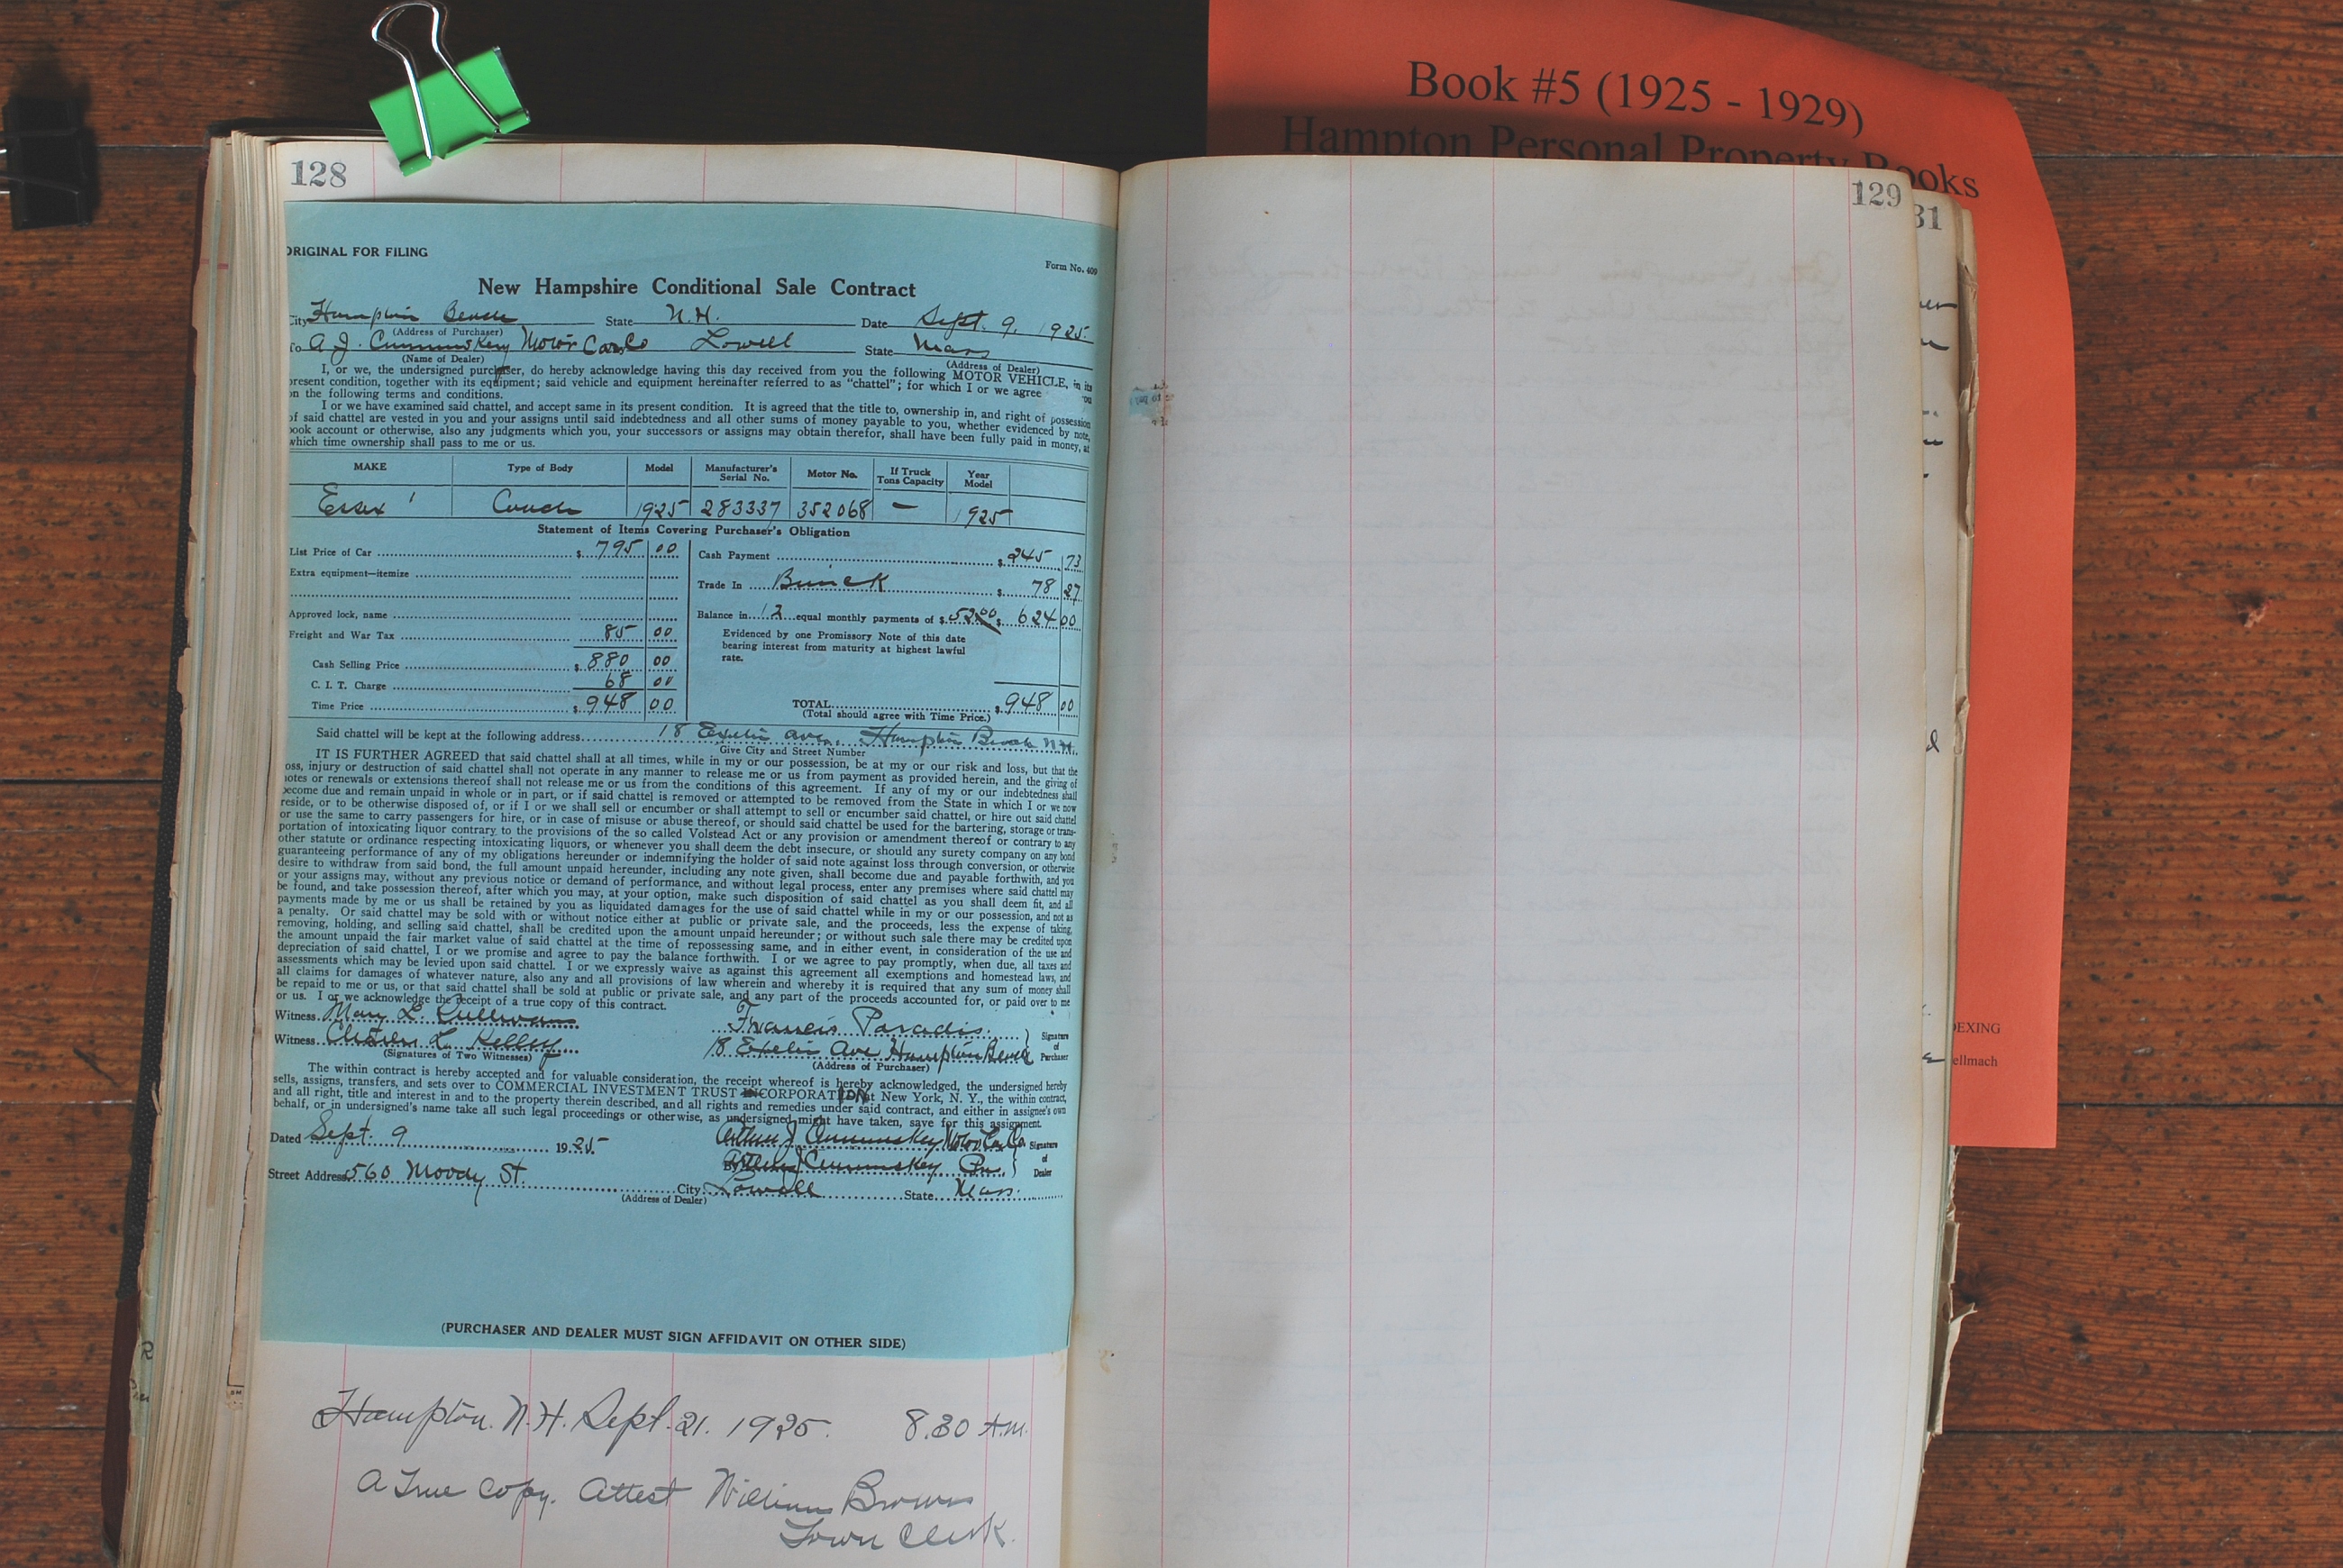 Book #5 (1925 - 1929)
Hampton Personal Property Books
128
129
31
ORIGINAL FOR FILING
Form No. 409
New Hampshire Conditional Sale Contract
City Hampton Beach State N.H. Date Sept. 9, 1925.
(Address of Purchaser)
To A J. Cummiskey Motor Car Co Lowell State Mass
(Name of Dealer) (Address of Dealer)
I, or we, the undersigned purchaser, do hereby acknowledge having this day received from you the following MOTOR VEHICLE, in its
present condition, together with its equipment; said vehicle and equipment hereinafter referred to as “chattel”; for which I or we agree you
on the following terms and conditions.
I or we have examined said chattel, and accept same in its present condition. It is agreed that the title to, ownership in, and right of possession
of said chattel are vested in you and your assigns until said indebtedness and all other sums of money payable to you, whether evidenced by note,
book account or otherwise, also any judgments which you, your successors or assigns may obtain therefor, shall have been fully paid in money, at
which time ownership shall pass to me or us.
MAKE Type of Body Model Manufacturer's Serial No. Motor No. If Truck Tons Capacity Year Model
Essex Coach 1925 283337 352068 — 1925
Statement of Items Covering Purchaser's Obligation
List Price of Car $ 795 00
Extra equipment—itemize
Approved lock, name
Freight and War Tax 85 00
Cash Selling Price $ 880 00
C. I. T. Charge 68 00
Time Price $ 948 00
Cash Payment $ 245 73
Trade In Buick $ 78 27
Balance in 12 equal monthly payments of $ 52.00 $ 624 00
Evidenced by one Promissory Note of this date
bearing interest from maturity at highest lawful
rate.
TOTAL $ 948 00
(Total should agree with Time Price.)
Said chattel will be kept at the following address 18 Exeter Ave. Hampton Beach N.H.
Give City and Street Number
IT IS FURTHER AGREED that said chattel shall at all times, while in my or our possession, be at my or our risk and loss, but that the
loss, injury or destruction of said chattel shall not operate in any manner to release me or us from payment as provided herein, and the giving of
notes or renewals or extensions thereof shall not release me or us from the conditions of this agreement. If any of my or our indebtedness shall
become due and remain unpaid in whole or in part, or if said chattel is removed or attempted to be removed from the State in which I or we now
reside, or to be otherwise disposed of, or if I or we shall sell or encumber or shall attempt to sell or encumber said chattel, or hire out said chattel
or use the same to carry passengers for hire, or in case of misuse or abuse thereof, or should said chattel be used for the bartering, storage or trans-
portation of intoxicating liquor contrary to the provisions of the so called Volstead Act or any provision or amendment thereof or contrary to any
other statute or ordinance respecting intoxicating liquors, or whenever you shall deem the debt insecure, or should any surety company on any bond
guaranteeing performance of any of my obligations hereunder or indemnifying the holder of said note against loss through conversion, or otherwise
desire to withdraw from said bond, the full amount unpaid hereunder, including any note given, shall become due and payable forthwith, and you
or your assigns may, without any previous notice or demand of performance, and without legal process, enter any premises where said chattel may
be found, and take possession thereof, after which you may, at your option, make such disposition of said chattel as you shall deem fit, and all
payments made by me or us shall be retained by you as liquidated damages for the use of said chattel while in my or our possession, and not as
a penalty. Or said chattel may be sold with or without notice either at public or private sale, and the proceeds, less the expense of taking,
removing, holding, and selling said chattel, shall be credited upon the amount unpaid hereunder; or without such sale there may be credited upon
the amount unpaid the fair market value of said chattel at the time of repossessing same, and in either event, in consideration of the use and
depreciation of said chattel, I or we promise and agree to pay the balance forthwith. I or we agree to pay promptly, when due, all taxes and
assessments which may be levied upon said chattel. I or we expressly waive as against this agreement all exemptions and homestead laws, and
all claims for damages of whatever nature, also any and all provisions of law wherein and whereby it is required that any sum of money shall
be repaid to me or us, or that said chattel shall be sold at public or private sale, and any part of the proceeds accounted for, or paid over to me
or us. I or we acknowledge the receipt of a true copy of this contract.
Witness Mary L. Sullivan Francis Paradis Signature of Purchaser
Witness L. Kelley 18 Exeter Ave Hampton Beach
(Signatures of Two Witnesses) (Address of Purchaser)
The within contract is hereby accepted and for valuable consideration, the receipt whereof is hereby acknowledged, the undersigned hereby
sells, assigns, transfers, and sets over to COMMERCIAL INVESTMENT TRUST INCORPORATION at New York, N. Y., the within contract,
and all right, title and interest in and to the property therein described, and all rights and remedies under said contract, and either in assignee's own
behalf, or in undersigned's name take all such legal proceedings or otherwise, as undersigned might have taken, save for this assignment.
Dated Sept. 9 1925 Arthur J Cummiskey Motor Car Co Signature of Dealer
By Arthur J Cummiskey Pres
Street Address 560 Moody St. City Lowell State Mass.
(Address of Dealer)
(PURCHASER AND DEALER MUST SIGN AFFIDAVIT ON OTHER SIDE)
Hampton. N.H. Sept. 21. 1925. 8.30 A.M.
A True Copy. Attest William Brown
Town Clerk.
DEXING
ellmach